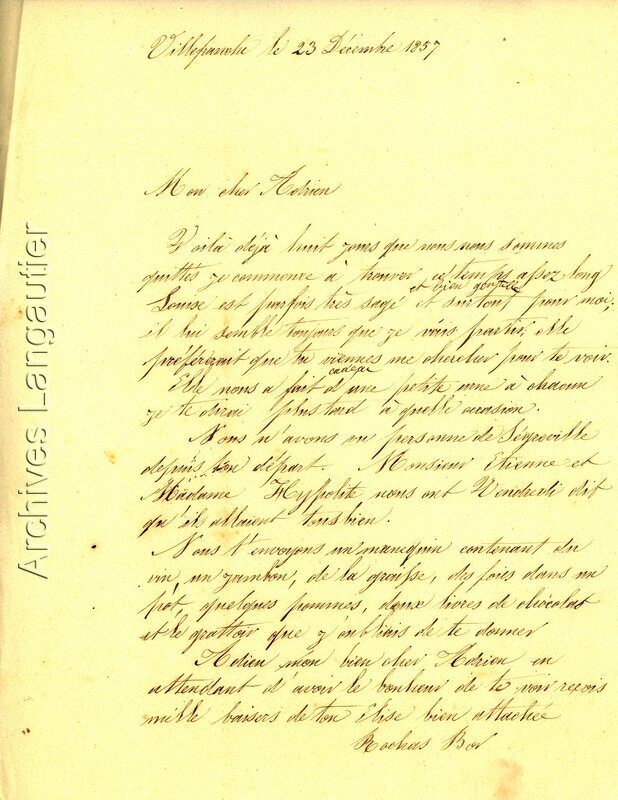 Villefranche le 23 Décembre 1857
Mon cher Adrien
Voilà déjà huit jours que nous nous sommes
quittés je commence à trouver ce temps assez long
Louise est parfois très sage et bien gentille et surtout pour moi,
il lui semble toujours que je vais partir, elle
préfèrerait que tu viennes me chercher pour te voir.
Elle nous a fait cadeau d'une petite à chacun
je te dirai plus tard à quelle occasion.
Nous n'avons vu personne de Ségreville
depuis ton départ. Monsieur Etienne et
Madame Hypolite nous ont Vendredi dit
qu'ils allaient tous bien.
Nous t'envoyons un manequin contenant du
vin, un jambon, de la graisse, des foies dans un
pot, quelques pommes, deux livres de chocolat
et le grattoir que j'oubliais de te donner
Adieu mon bien cher Adrien en
attendant d'avoir le bonheur de te voir reçois
mille baisers de ton Elise bien attachée
Rochas
Archives Langautier